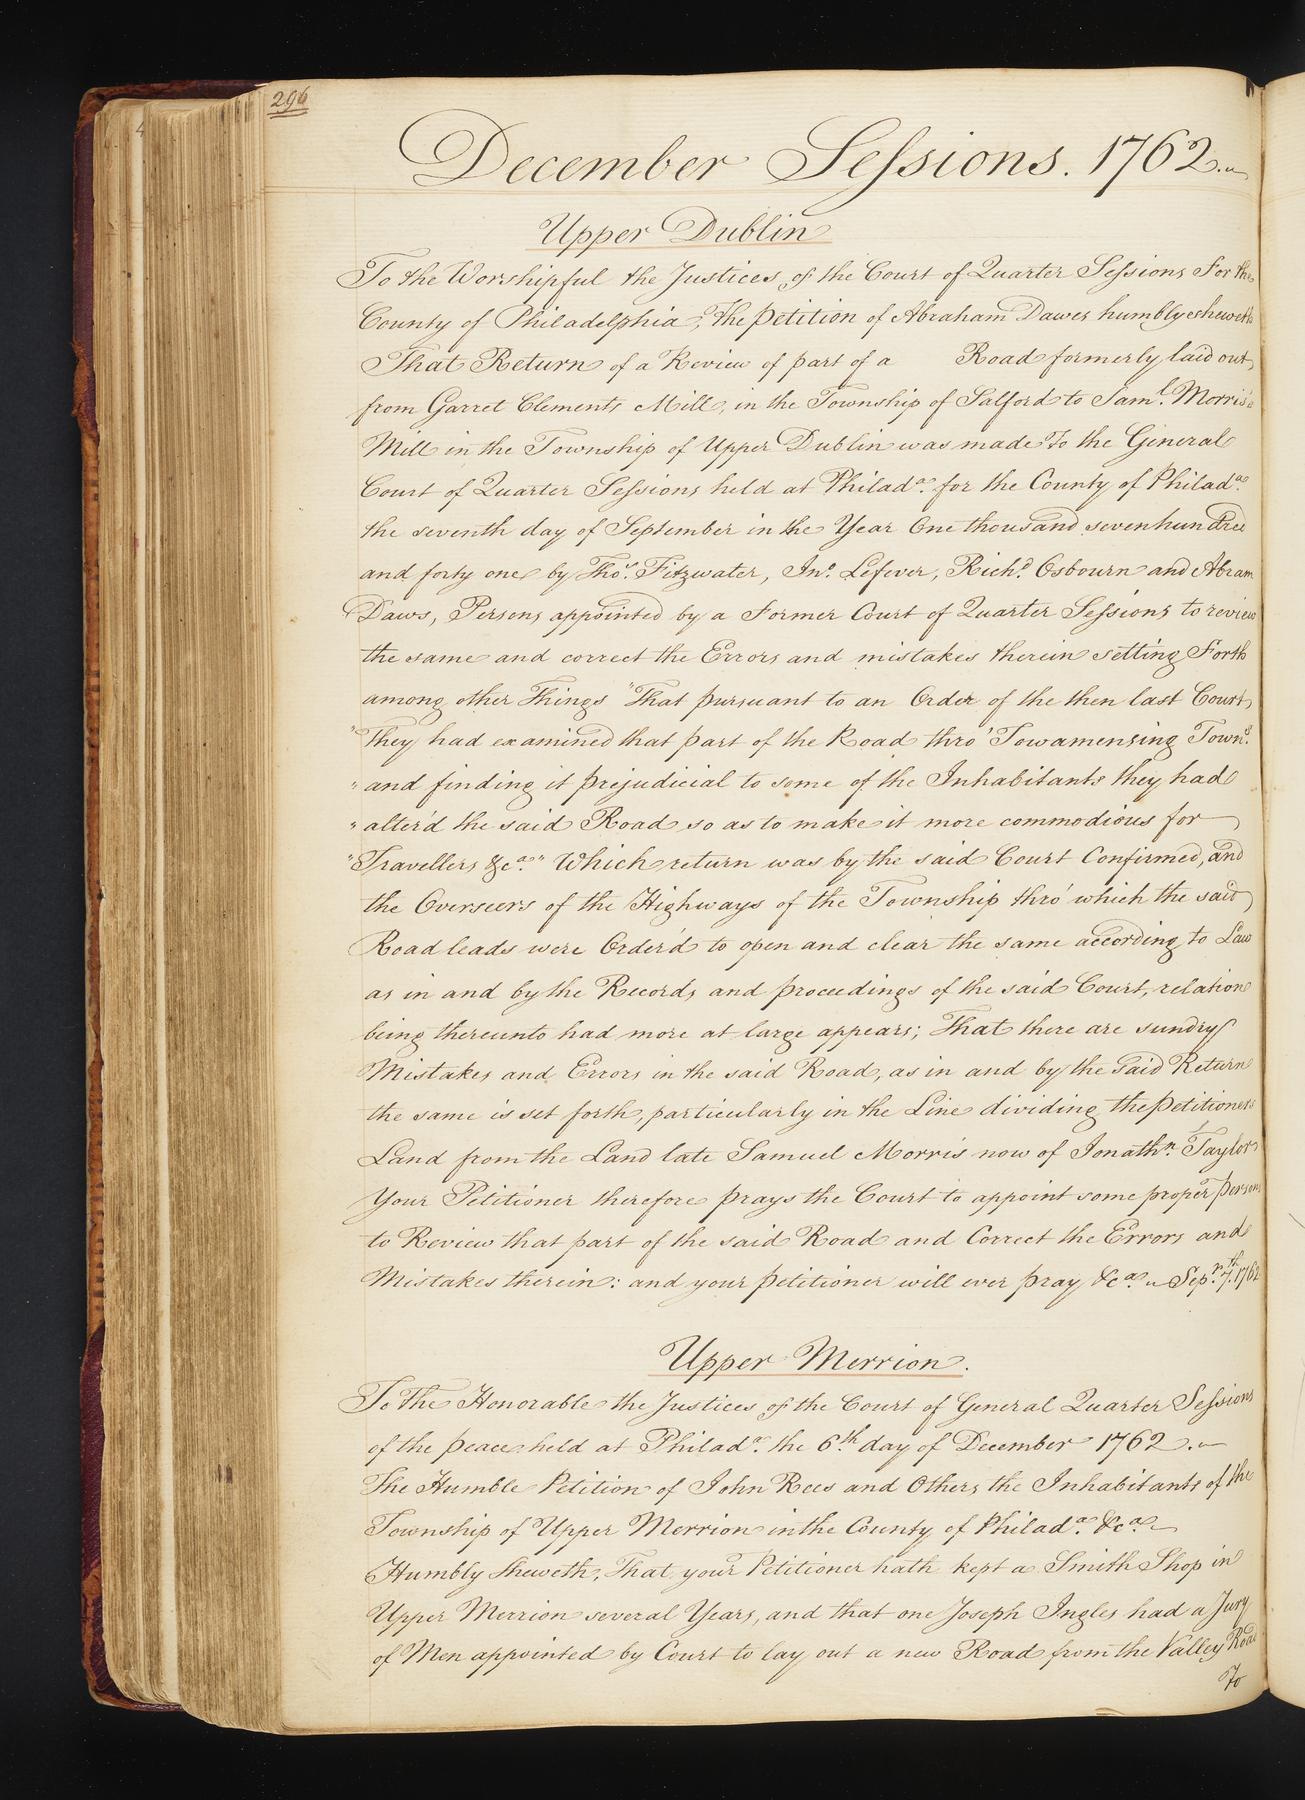 296
December Sessions. 1762.
Upper Dublin
To the Worshipful the Justices of the Court of Quarter Sessions For the
County of Philadelphia, The Petition of Abraham Dawes humbly sheweth
That Return of a Review of part of a Road formerly laid out
from Garret Clements Mill, in the Township of Salford to Saml. Morris's
Mill in the Township of Upper Dublin was made To the General
Court of Quarter Sessions held at Philada. for the County of Philada.
the seventh day of September in the Year One thousand seven hundred
and forty one by Thos. Fitzwater, Jno. Lefever, Richd. Osbourn and Abram
Daws, Persons appointed by a Former Court of Quarter Sessions to review
the same and correct the Errors and mistakes therein setting Forth
among other Things "That pursuant to an Order of the then last Court
"They had examined that part of the Road thro' Towamensing Town
" and finding it prejudicial to some of the Inhabitants they had
" alter'd the said Road so as to make it more commodious for
"Travellers &ca." Which return was by the said Court Confirmed, and
the Overseers of the Highways of the Township thro' which the said
Road leads were Order'd to open and clear the same according to Law
as in and by the Records and proceedings of the said Court, relation
being thereunto had more at large appears; That there are sundry
Mistakes and Errors in the said Road, as in and by the said Return
the same is set forth, particularly in the Line dividing the Petitioners
Land from the Land late Samuel Morris now of Jonathn. Taylor
Your Petitioner therefore prays the Court to appoint some proper Persons
to Review that part of the said Road and Correct the Errors and
Mistakes therein: and your petitioner will ever pray &ca. Sepr. 7th. 1762
Upper Merrion.
To The Honorable the Justices of the Court of General Quarter Sessions
of the peace held at Philada. the 6th day of December 1762.
The Humble Petition of John Rees and Others the Inhabitants of the
Township of Upper Merrion in the County of Philada. &ca.
Humbly Sheweth, That your Petitioner hath kept a Smith Shop in
Upper Merrion several Years, and that one Joseph Ingles had a Jury
of Men appointed by Court to lay out a new Road from the Valley Road
To